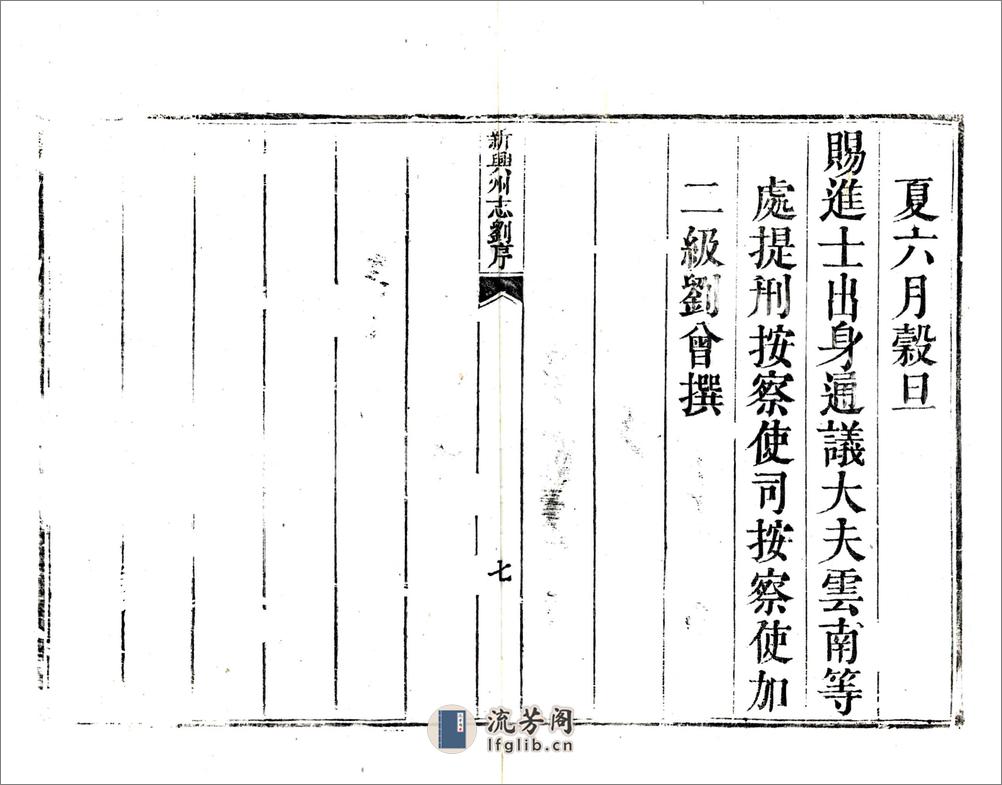 夏六月穀旦
賜進士出身通議大夫雲南等
處提刑按察使司按察使加
二級劉曾撰
新興州志劉序
七
流芳阁
lfglib.cn